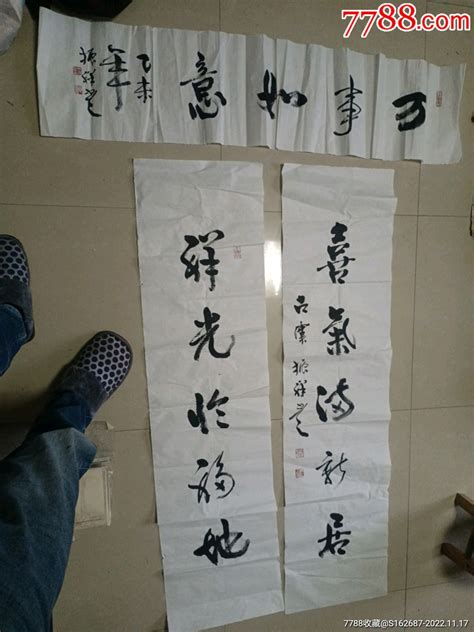 7788.com
万事如意
乙未
年
喜氣满新居
祥光临福地
7788收藏@S162687-2022.11.17